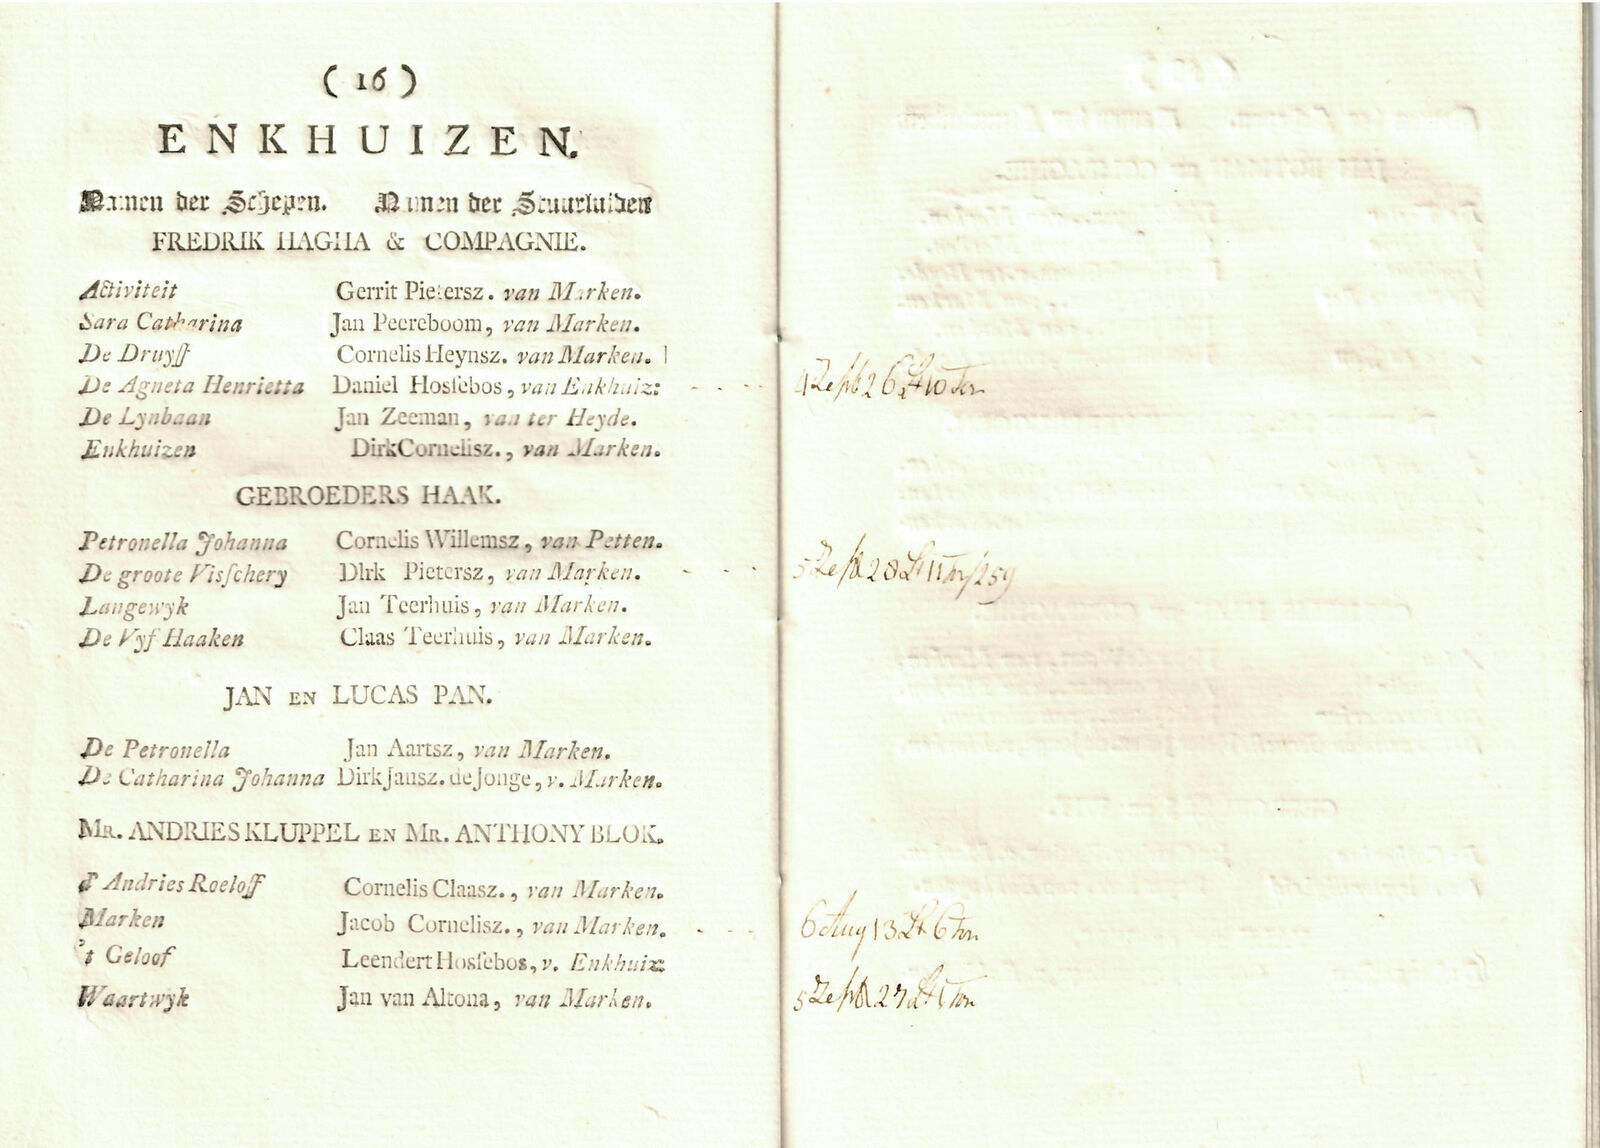 ( 16 )
ENKHUIZEN.
Namen der Schepen. Namen der Stuurluiden
FREDRIK HAGHA & COMPAGNIE.
Activiteit Gerrit Pietersz. van Marken.
Sara Catharina Jan Peereboom, van Marken.
De Druyff Cornelis Heynsz. van Marken.
De Agneta Henrietta Daniel Hosſebos, van Enkhuiz: 4 Zept 26 Lt 10 Ton
De Lynbaan Jan Zeeman, van ter Heyde.
Enkhuizen Dirk Cornelisz., van Marken.
GEBROEDERS HAAK.
Petronella Johanna Cornelis Willemsz, van Petten.
De groote Visſchery Dirk Pietersz, van Marken. 5 Zept 28 Lt 11 Ton / 259
Langewyk Jan Teerhuis, van Marken.
De Vyf Haaken Claas Teerhuis, van Marken.
JAN EN LUCAS PAN.
De Petronella Jan Aartsz, van Marken.
De Catharina Johanna Dirk Jansz. de Jonge, v. Marken.
MR. ANDRIES KLUPPEL EN MR. ANTHONY BLOK.
d' Andries Roeloff Cornelis Claasz., van Marken.
Marken Jacob Cornelisz., van Marken. 6 Aug 13 Lt 6 Ton
't Geloof Leendert Hosſebos, v. Enkhuiz:
Waartwyk Jan van Altona, van Marken. 5 Zept 27 Lt 1 Ton